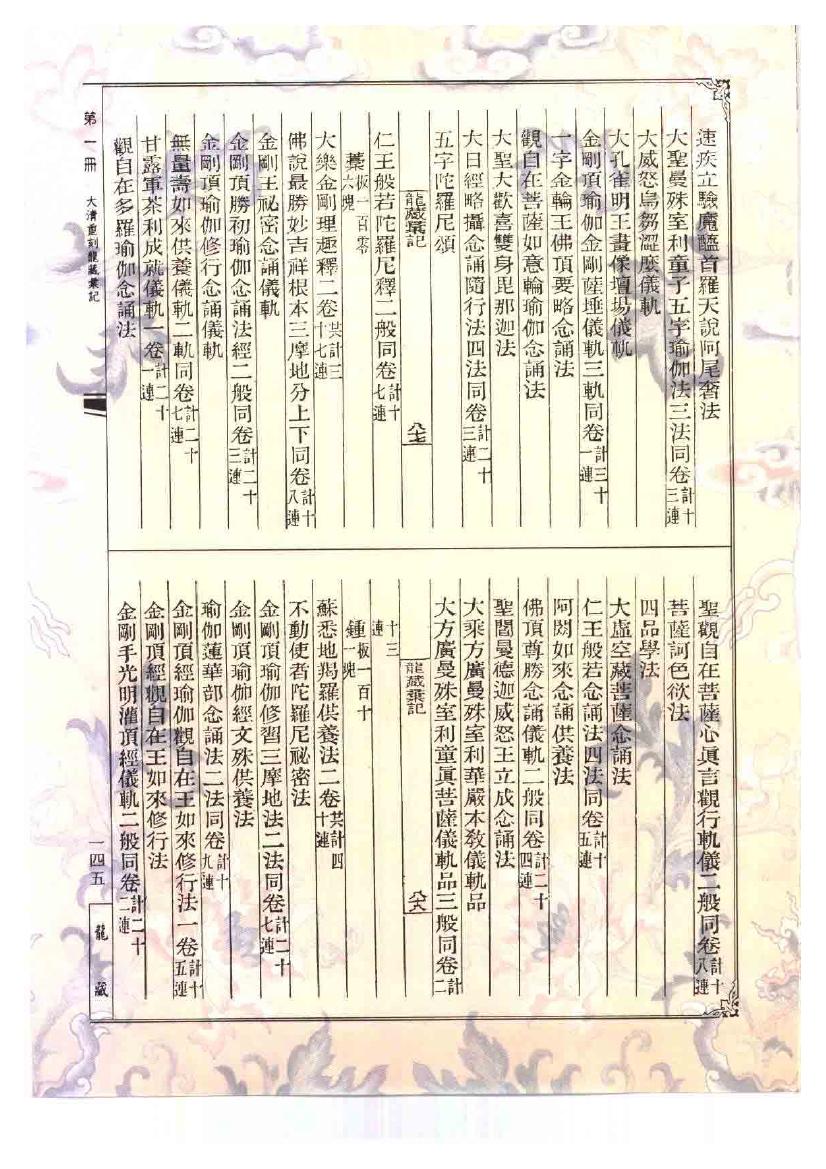 速疾立驗魔醯首羅天說阿尾奢法
大聖曼殊室利童子五字瑜伽法三法同卷計十三連
大威怒烏芻澀麼儀軌
大孔雀明王畫像壇場儀軌
金剛頂瑜伽金剛薩埵儀軌三軌同卷計三十一連
一字金輪王佛頂要略念誦法
觀自在菩薩如意輪瑜伽念誦法
大聖大歡喜雙身毘那迦法
大日經略攝念誦隨行法四法同卷計二十三連
五字陀羅尼頌
龍藏彙記 八七
仁王般若陀羅尼釋二般同卷計十七連
藁板一百零六塊
大樂金剛理趣釋二卷共計三十七連
佛說最勝妙吉祥根本三摩地分上下同卷計十八連
金剛王祕密念誦儀軌
金剛頂勝初瑜伽念誦法經二般同卷計二十三連
金剛頂瑜伽修行念誦儀軌
無量壽如來供養儀軌二軌同卷計二十七連
甘露軍茶利成就儀軌一卷計二十一連
觀自在多羅瑜伽念誦法
聖觀自在菩薩心眞言觀行軌儀二般同卷計十八連
菩薩訶色欲法
四品學法
大虛空藏菩薩念誦法
仁王般若念誦法四法同卷計十五連
阿閦如來念誦供養法
佛頂尊勝念誦儀軌二般同卷計二十四連
聖閻曼德迦威怒王立成念誦法
大乘方廣曼殊室利華嚴本敎儀軌品
大方廣曼殊室利童眞菩薩儀軌品三般同卷計二
龍藏彙記 八六
十三連
鍾板一百十一塊
蘇悉地羯羅供養法二卷共計四十連
不動使者陀羅尼祕密法
金剛頂瑜伽修習三摩地法二法同卷計二十七連
金剛頂瑜伽經文殊供養法
瑜伽蓮華部念誦法二法同卷計十九連
金剛頂經瑜伽觀自在王如來修行法一卷計十五連
金剛頂經觀自在王如來修行法
金剛手光明灌頂經儀軌二般同卷計二十二連
第一冊 大清重刻龍藏彙記
一四五 龍藏